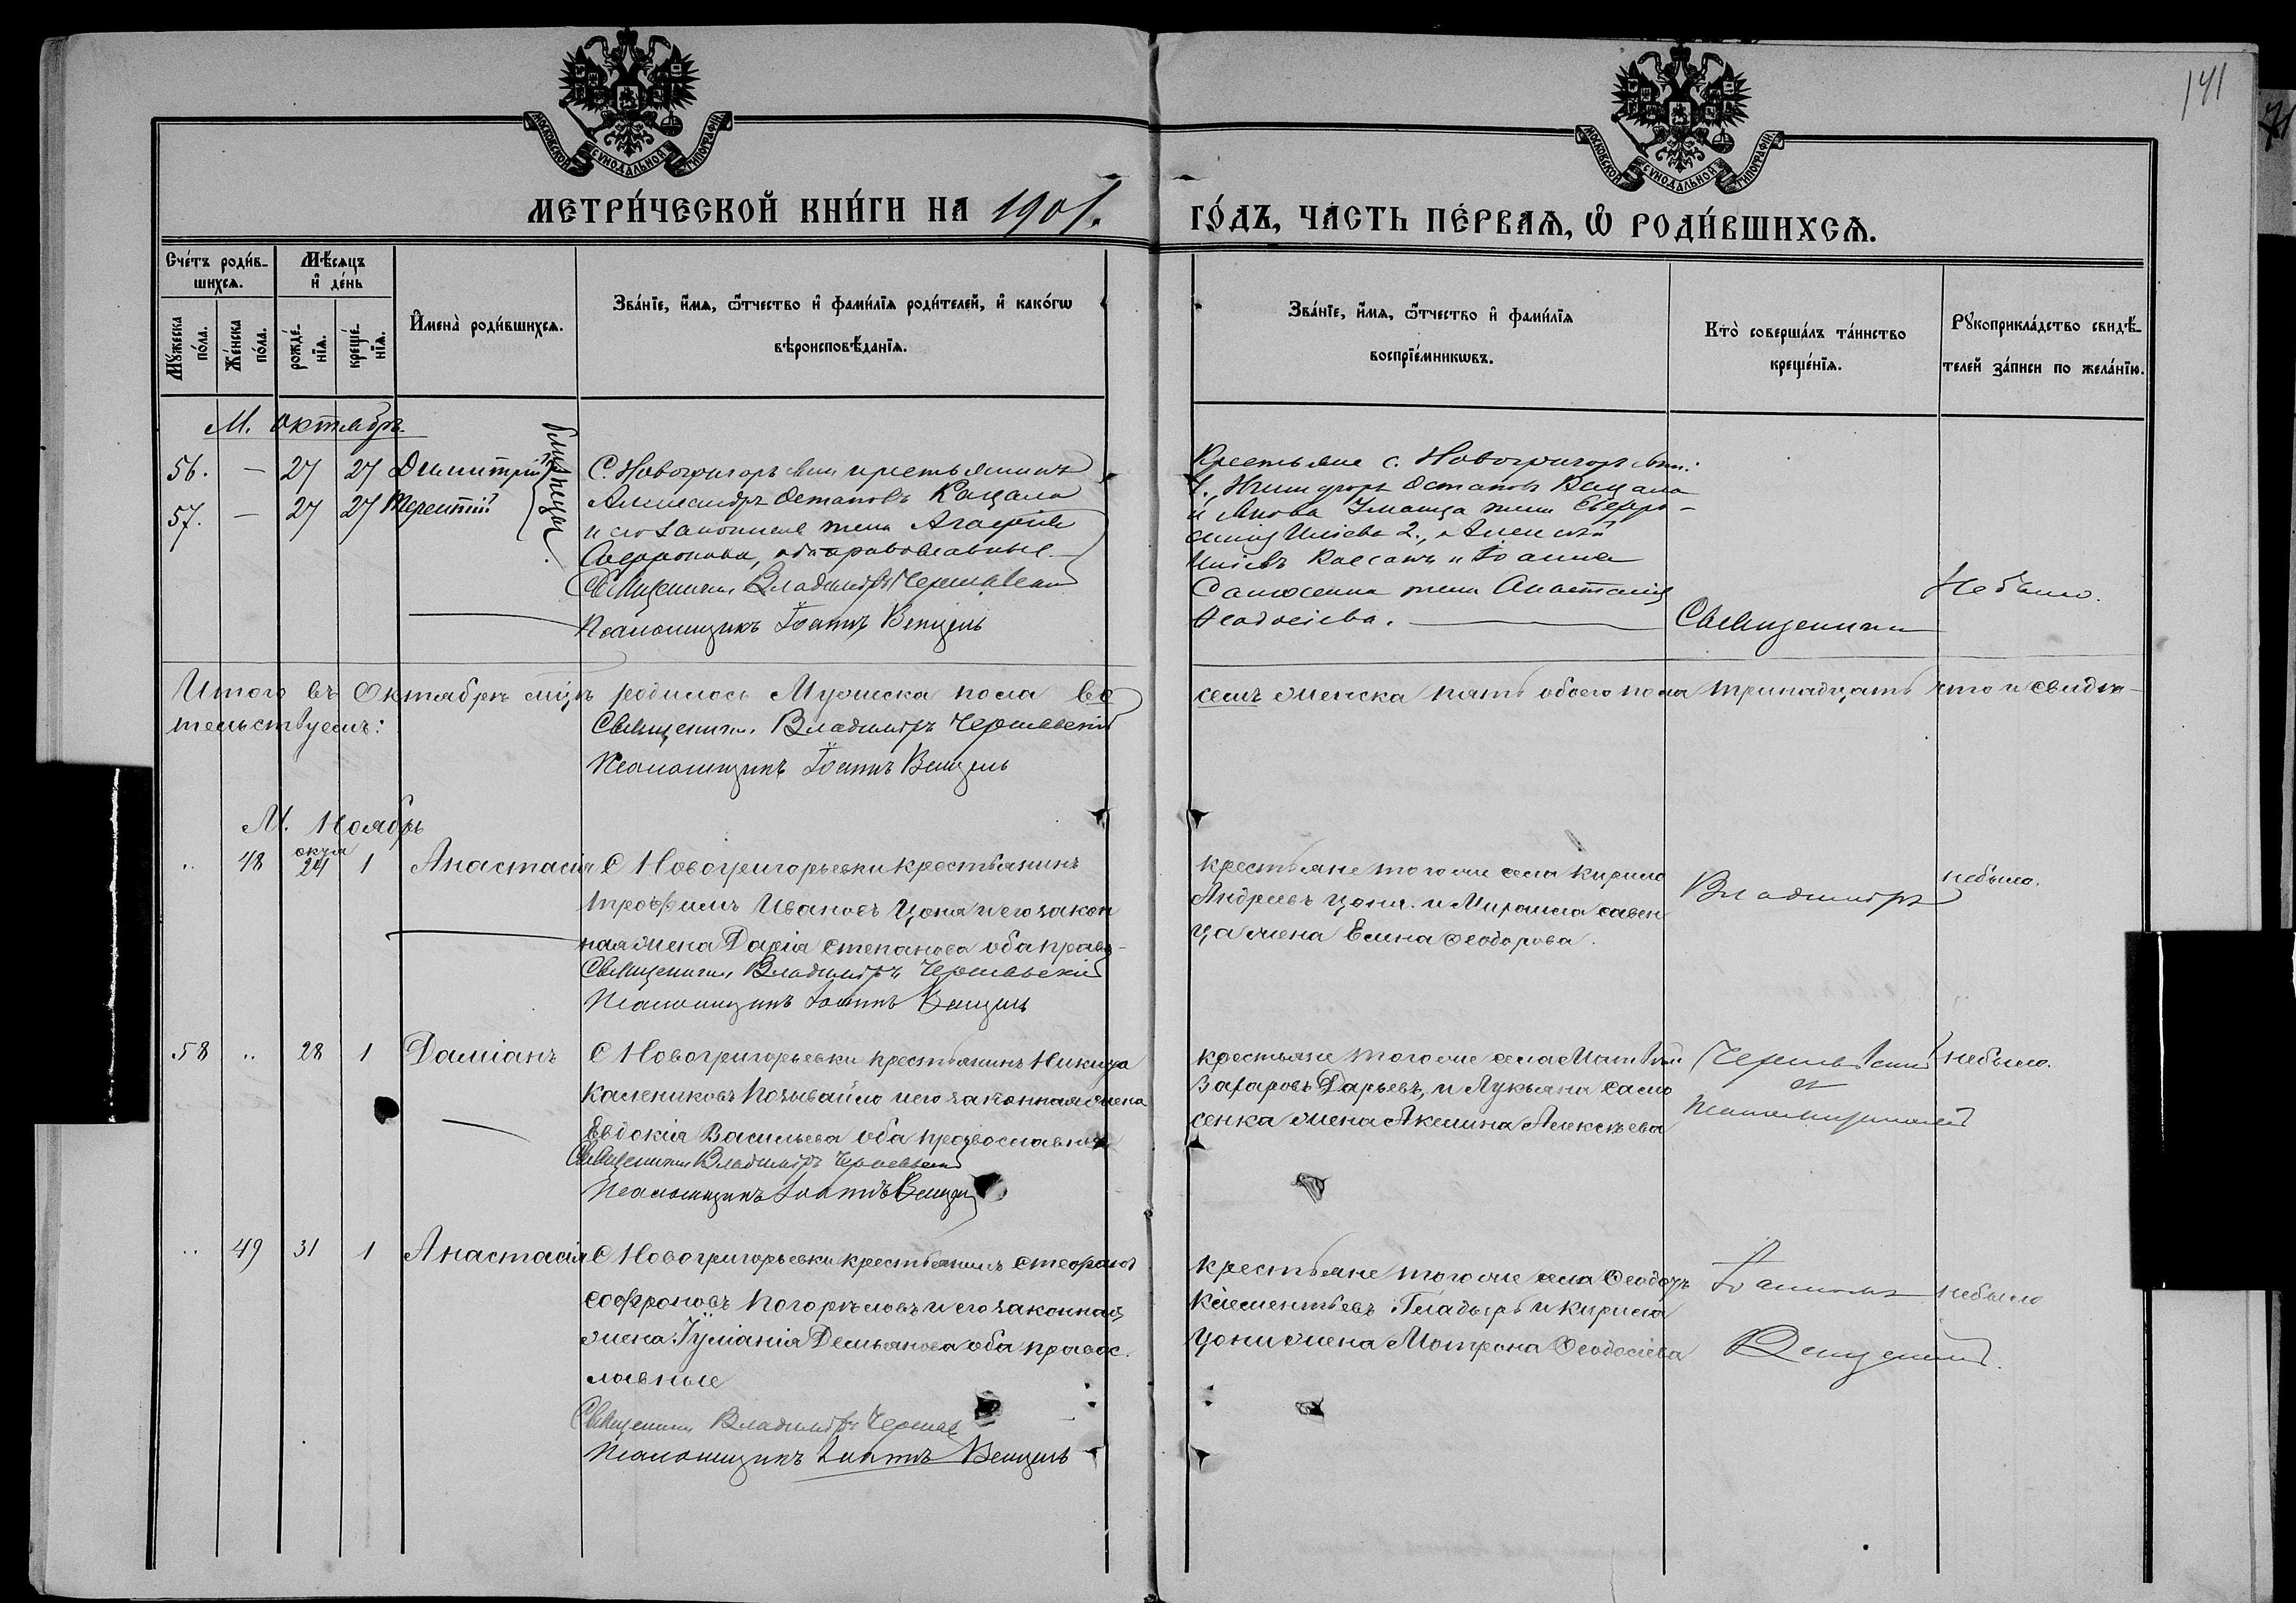 141
71
МОСКОВСКОЙ СѴНОДАЛЬНОЙ ТИПОГРАФІИ
МОСКОВСКОЙ СѴНОДАЛЬНОЙ ТИПОГРАФІИ
МЕТРИ́ЧЕСКОЙ КНИ́ГИ НА 1901. ГО́ДЪ, ЧА́СТЬ ПЕ́РВАѦ, Ѡ РОДИ́ВШИХСѦ.
Сче́тъ роди́вшихсѧ.
Мѣ́сѧцъ и де́нь
Мꙋ́жеска по́ла.
Же́нска по́ла.
рожде́нїѧ.
креще́нїѧ.
Имена̀ роди́вшихсѧ.
Зва́нїе, и́мѧ, ѻ҆́тчество и фами́лїѧ роди́телей, и како́гѡ вѣроисповѣ́данїѧ.
Зва́нїе, и́мѧ, ѻ҆́тчество и фами́лїѧ воспрїе́мникѡвъ.
Кто̀ соверша́лъ та́инство креще́нїѧ.
Рꙋкоприкла́дство свидѣ́телей за́писи по жела́нїю.
М. Октябрь
56. — 27 27 Димитрій
57. — 27 27 Терентій
близнецы.
С. Новогригорьевки крестьянинъ
Александръ Остаповъ Кацало
и его законная жена Агафія
Софронова, оба православные.
Священникъ Владиміръ Чернявскій
Псаломщикъ Іоаннъ Венцель
Крестьяне с. Новогригорьевки:
1., Никифоръ Остаповъ Кацало
и Якова Игнатца жена Евфро-
синія Ильева 2., Алексѣй
Ильевъ Кассанъ и Іоанна
Самосенка жена Анастасія
Феодосіева.
Священникъ
Небыло.
Итого въ Октябрѣ мцѣ родилось Мужеска пола во
семь женска пять обоего пола тринадцать что и свидѣ-
тельствуемъ:
Священникъ Владиміръ Чернявскій
Псаломщикъ Іоаннъ Венцель
М. Ноябрь
.. 48 окт. 24 1 Анастасія
С Новогригорьевки крестьянинъ
Трофимъ Ивановъ Цона и его закон
ная жена Дарія Степанова оба прав.
Священникъ Владиміръ Чернявскій
Псаломщикъ Іоаннъ Венцель
крестьяне того же села Кирило
Андреевъ Цона и Мирона савен
ца жена Елена Феодорова.
Владиміръ
небыло.
58 .. 28 1 Даміанъ
С Новогригорьевки крестьянинъ Никита
Калениковъ Позывайло и его законная жена
Евдокія Васильева оба православные
Священникъ Владиміръ Чернявскій
Псаломщикъ Іоаннъ Венцель
крестьяне того же села Матвѣй
Захаровъ Дарьевъ, и Лукьяна само
сенка жена Акелина Алексѣева
Чернявскій
съ
псаломщикомъ
небыло.
.. 49 31 1 Анастасія
С Новогригорьевки крестьянинъ Стефанъ
Софроновъ Погорѣловъ и его законная
жена Іуліанія Демьянова оба правос.
лавные
Священникъ Владиміръ Чернявскій
Псаломщикъ Іоаннъ Венцель
крестьяне того же села Феодоръ
Климентьевъ Гладырь и Кирила
Цони жена Матрона Феодосіева
Іоанномъ
Венцелемъ.
небыло